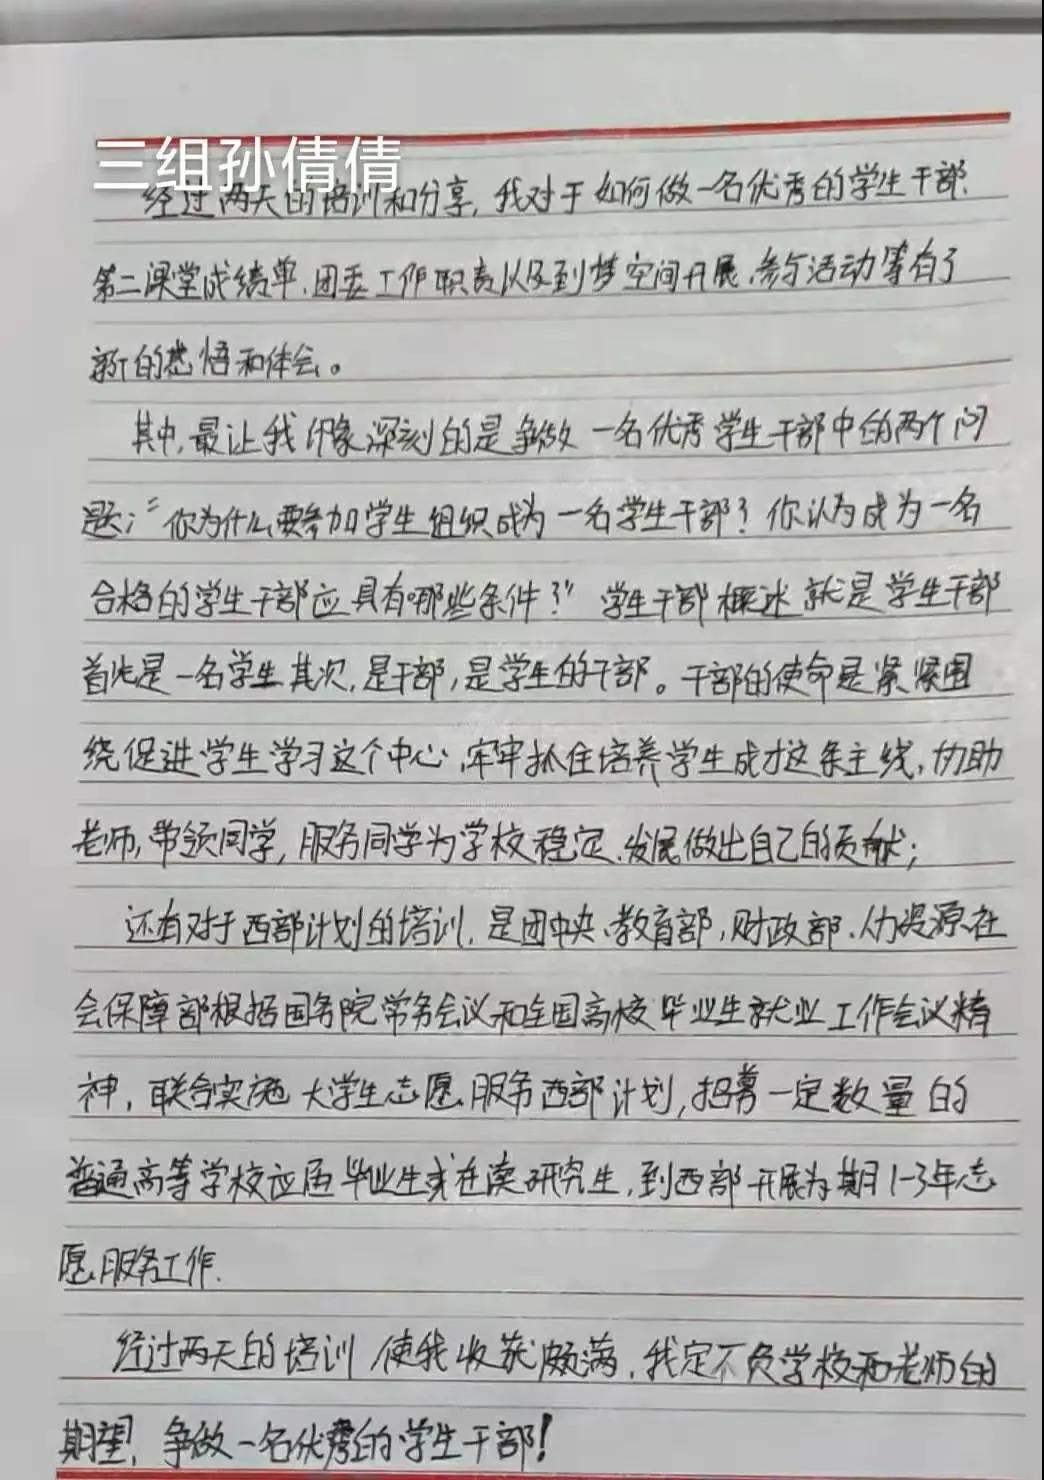 三组孙倩倩
经过两天的培训和分享,我对于如何做一名优秀的学生干部、
第二课堂成绩单、团委工作职责以及到梦空间开展、参与活动等有了
新的感悟和体会。
其中,最让我印象深刻的是争做一名优秀学生干部中的两个问
题:“你为什么要参加学生组织成为一名学生干部?你认为成为一名
合格的学生干部应具有哪些条件?”学生干部概述就是学生干部
首先是一名学生其次,是干部,是学生的干部。干部的使命是紧紧围
绕促进学生学习这个中心,牢牢抓住培养学生成才这条主线,协助
老师,带领同学,服务同学为学校稳定、发展做出自己的贡献;
还有对于西部计划的培训,是团中央、教育部,财政部、人力资源在
会保障部根据国务院常务会议和全国高校毕业生就业工作会议精
神,联合实施大学生志愿服务西部计划,招募一定数量的
普通高等学校应届毕业生或在读研究生,到西部开展为期1-3年志
愿服务工作.
经过两天的培训使我收获颇满,我定不负学校和老师的
期望,争做一名优秀的学生干部!